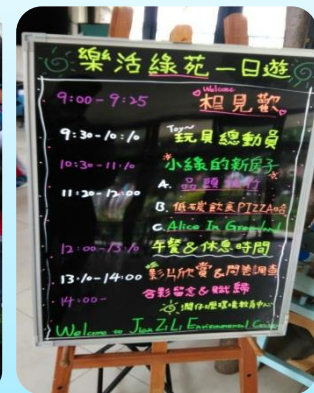 樂活綠苑一日遊
Welcome
9:00-9:25 相見歡
Toy~
9:30-10:10 玩具總動員
10:30-11:10 小綠的新房子
11:20-12:00 A.
B. 低碳飲食PIZZA哈
C. Alice In Greenland
12:00-13:10 午餐&休息時間
13:10-14:00 影片欣賞&問卷調查
14:00- 合影留念&賦歸
潤仔壢環境教育中心
Welcome to Jian Zi Li Environmental Center